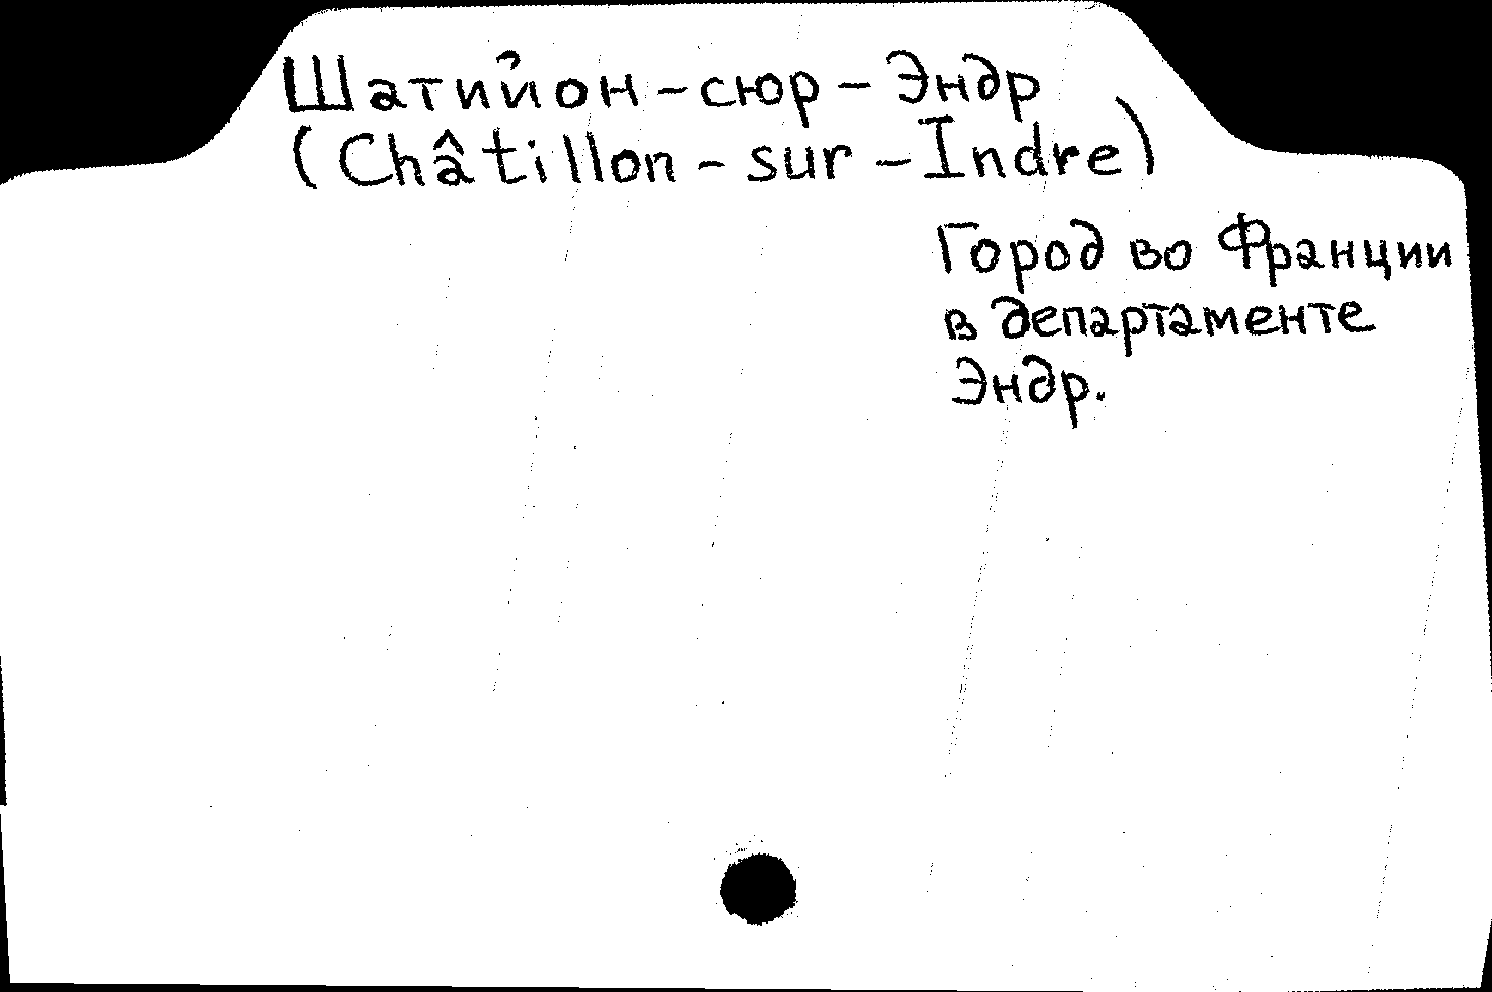 Шатийон-сюр-Эндр
(Châtillon-sur-Indre)
Город во Франции
в департаменте
Эндр.